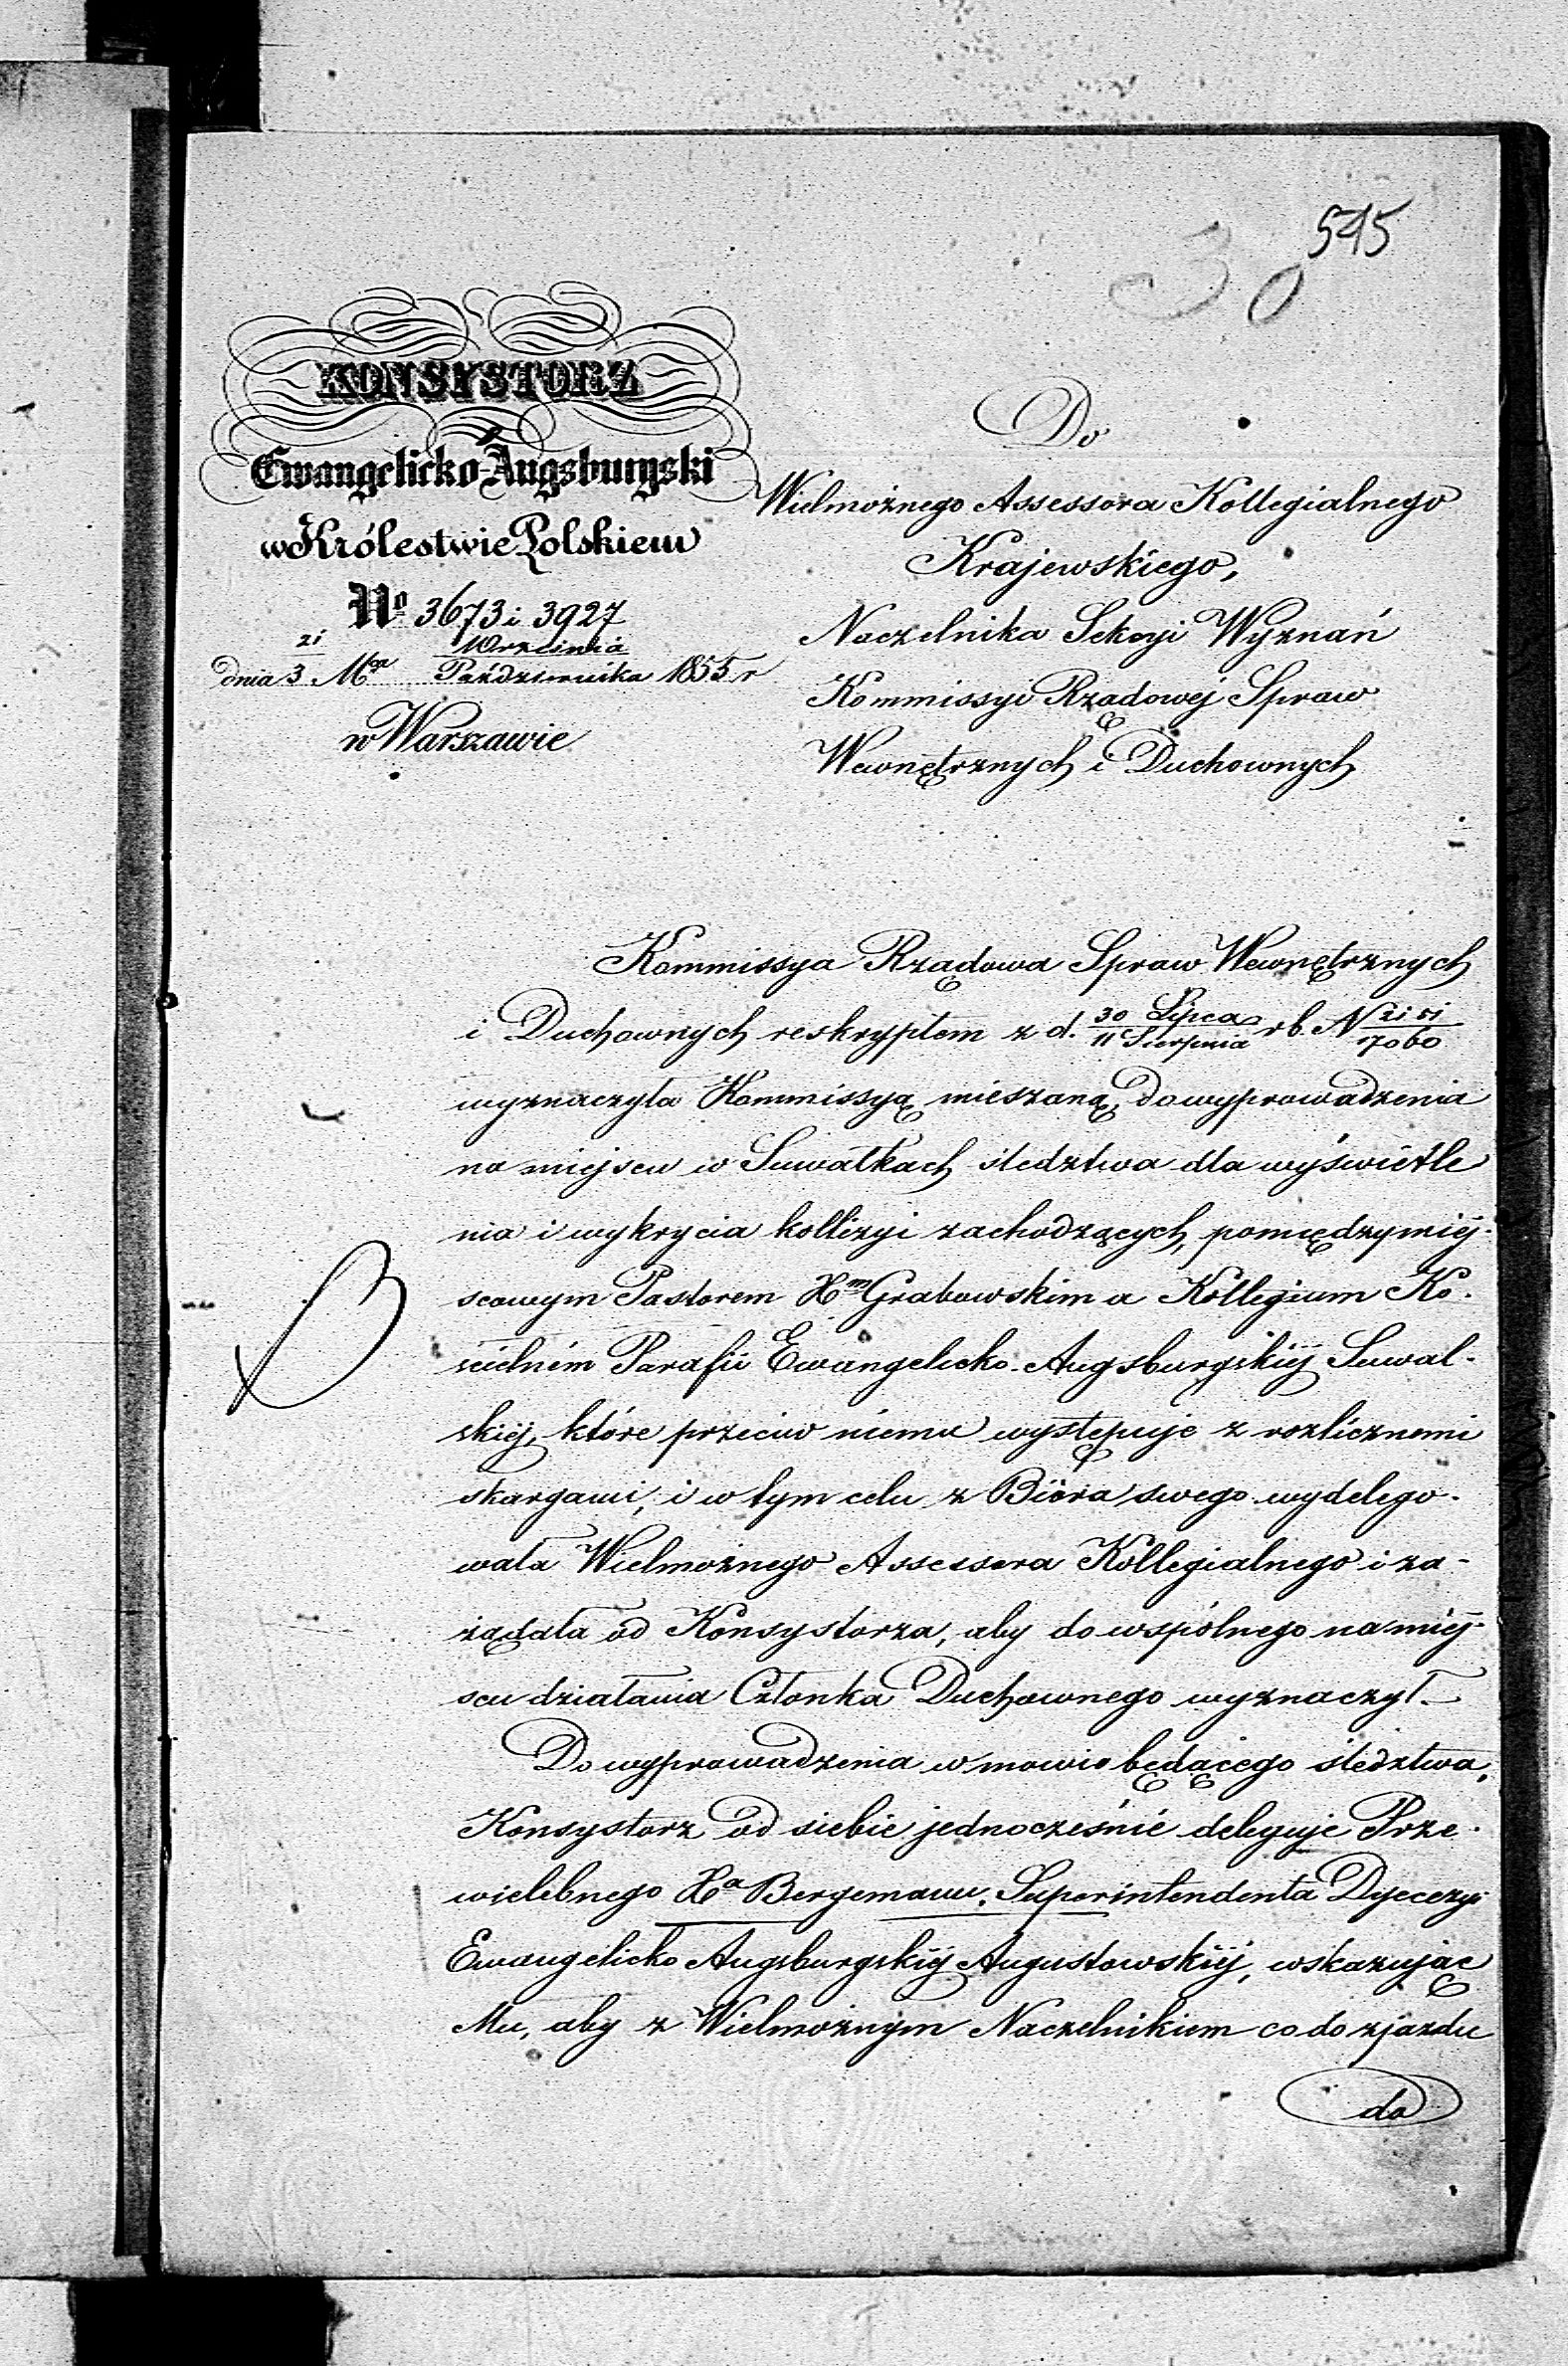 545
30
KONSYSTORZ
Ewangelicko-Augsburgski
w Królestwie Polskiem
No 3673 i 3927
21 Września
dnia 3 Mca Października 1855 r
w Warszawie
Do
Wielmożnego Assessora Kollegialnego
Krajewskiego,
Naczelnika Sekcyi Wyznań
Kommissyi Rządowéj Spraw
Wewnętrznych i Duchownych
Kommissya Rządowa Spraw Wewnętrznych
i Duchownych reskryptem z d. 30 Lipca/11 Sierpnia rb. N 2151/7060
wyznaczyła Kommissyą mieszaną, do wyprowadzenia
na miejscu w Suwałkach śledztwa dla wyświetle
nia i wykrycia kollizyi zachodzących, pomiędzy miéj-
scowym Pastorem Xm Grabowskim a Kollegium Ko-
ścielném Parafii Ewangelicko-Augsburgskiéj Suwal-
skiéj, które przeciw niemu występuje z rozlicznemi
skargami, i w tym celu z Bióra swego wydelego-
wała Wielmożnego Assessora Kollegialnego i za-
żądała od Konsystorza, aby do wspólnego na miéj-
scu działania Członka Duchownego wyznaczył.—
Do wyprowadzenia w mowie będącego śledztwa,
Konsystorz od siebie jednocześnie deleguje Prze-
wielebnego Xa Bergemann, Superintendenta Dyecezyi
Ewangelicko Augsburgskiéj Augustowskiéj, wskazując
Mu, aby z Wielmożnym Naczelnikiem co do zjazdu
do